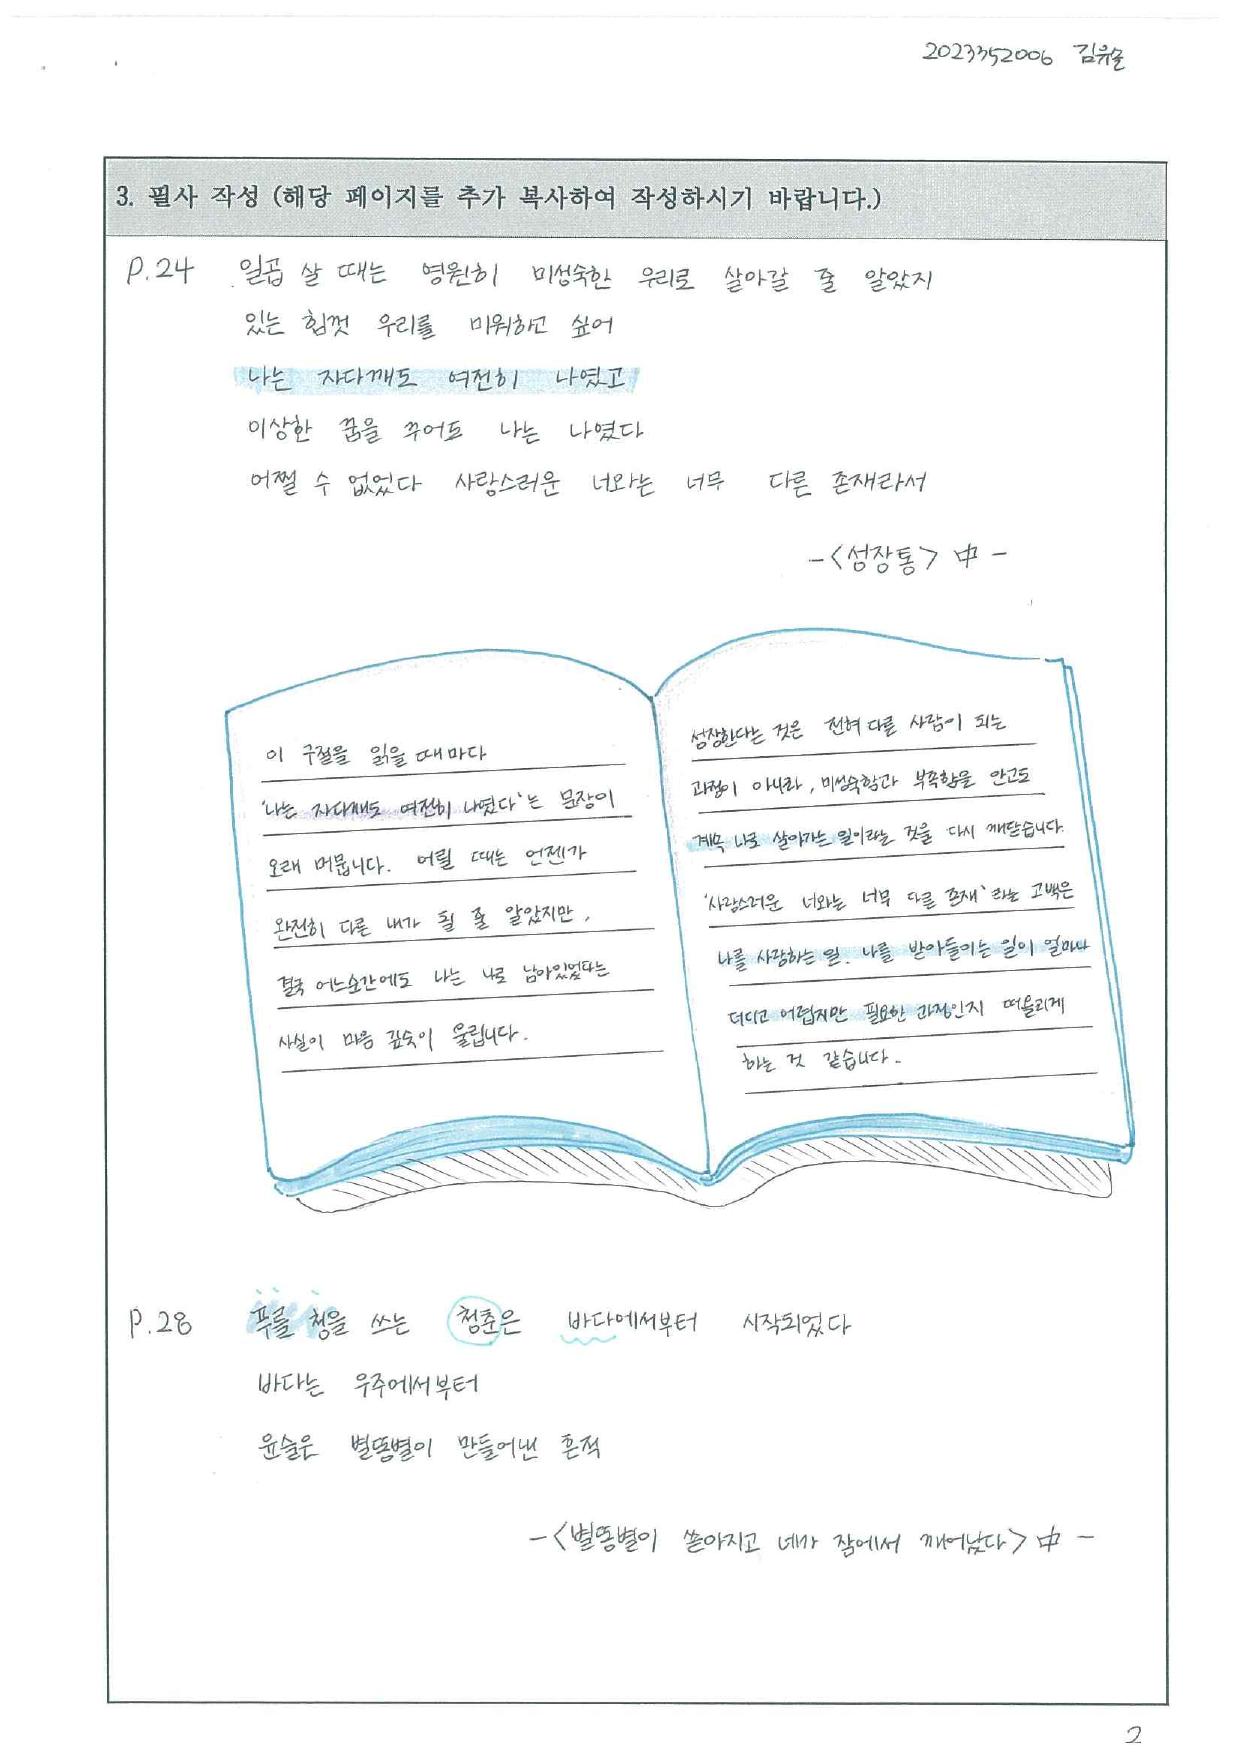 2023352006 김유솔
3. 필사 작성 (해당 페이지를 추가 복사하여 작성하시기 바랍니다.)
P.24 일곱 살 때는 영원히 미성숙한 우리로 살아갈 줄 알았지
있는 힘껏 우리를 미워하고 싶어
나는 자다깨도 여전히 나였고
이상한 꿈을 꾸어도 나는 나였다
어쩔 수 없었다 사랑스러운 너와는 너무 다른 존재라서
-<성장통> 中-
이 구절을 읽을 때마다
'나는 자다깨도 여전히 나였다'는 문장이
오래 머뭅니다. 어릴 때는 언젠가
완전히 다른 내가 될 줄 알았지만,
결국 어느순간에도 나는 나로 남아있었다는
사실이 마음 깊숙이 울립니다.
성장한다는 것은 전혀 다른 사람이 되는
과정이 아니라, 미성숙함과 부족함을 안고도
계속 나로 살아가는 일이라는 것을 다시 깨닫습니다.
'사랑스러운 너와는 너무 다른 존재'라는 고백은
나를 사랑하는 일, 나를 받아들이는 일이 얼마나
더디고 어렵지만 필요한 과정인지 떠올리게
하는 것 같습니다.
P.28 푸를 청을 쓰는 청춘은 바다에서부터 시작되었다
바다는 우주에서부터
윤슬은 별똥별이 만들어낸 흔적
-<별똥별이 쏟아지고 네가 잠에서 깨어났다> 中-
2